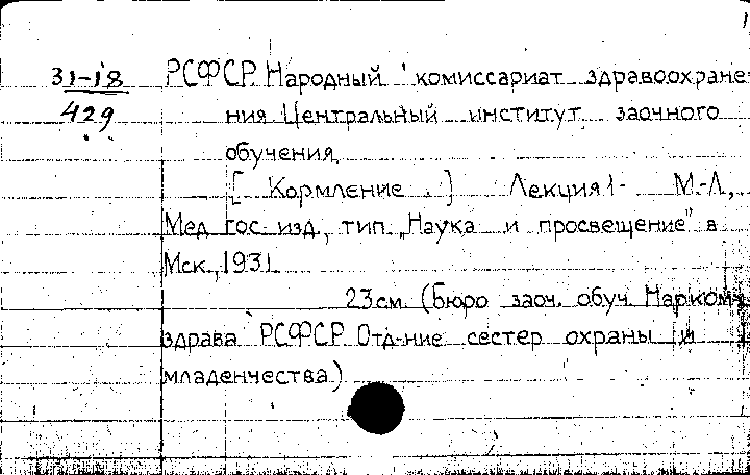 31-18
429
РСФСР. Народный комиссариат здравоохране-
ния Центральный институт заочного
обучения.
[ Кормление . ] Лекция 1- М.-Л.,
Мед. гос. изд., тип. „Наука и просвещение" в
Мск., 1931.
23см. (Бюро заоч. обуч. Нарком-
здрава РСФСР. Отд-ние сестер охраны м
младенчества)